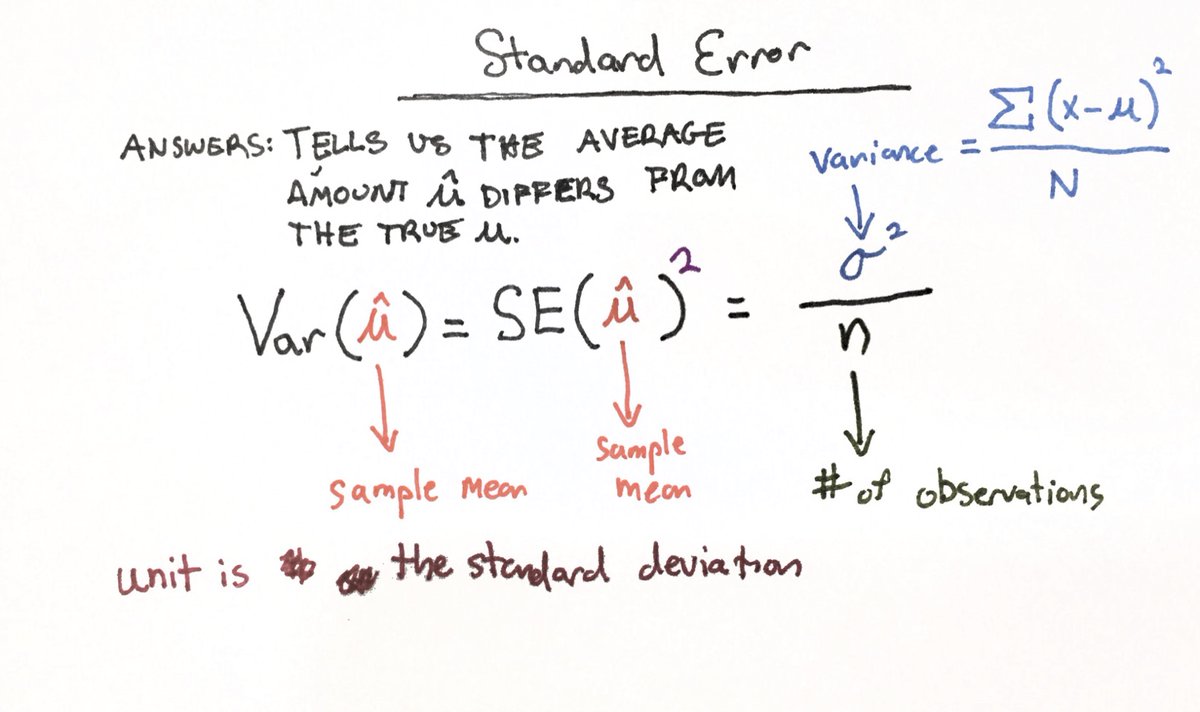 Standard Error
ANSWERS: TELLS US THE AVERAGE
AMOUNT û DIFFERS FROM
THE TRUE u.
variance = Σ(x-u)²
N
Var(û) = SE(û)² = σ²
n
sample mean
sample
mean
# of observations
unit is the standard deviation